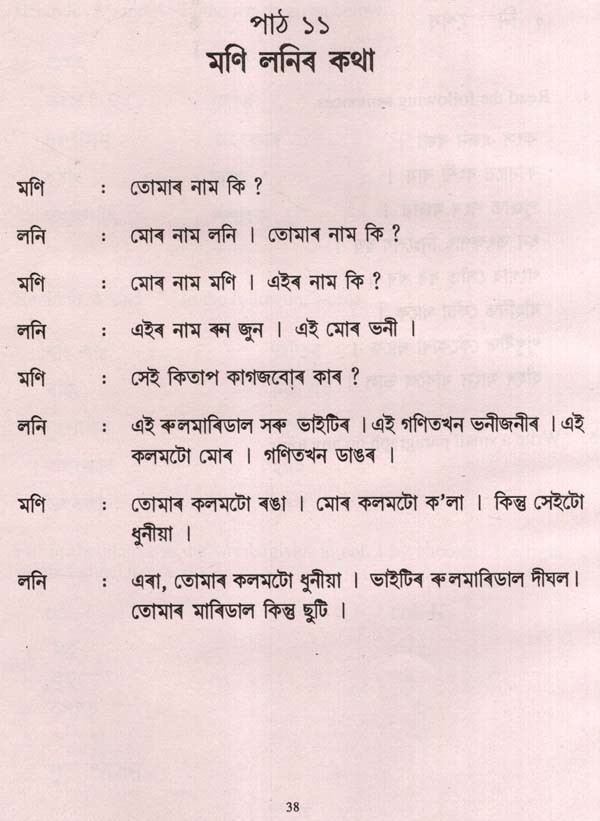 পাঠ ১১
মণি লনিৰ কথা
মণি : তোমাৰ নাম কি ?
লনি : মোৰ নাম লনি । তোমাৰ নাম কি ?
মণি : মোৰ নাম মণি । এইৰ নাম কি ?
লনি : এইৰ নাম ৰুন জুন । এই মোৰ ভনী ।
মণি : সেই কিতাপ কাগজবোৰ কাৰ ?
লনি : এই ৰুলমাৰিডাল সৰু ভাইটিৰ । এই গণিতখন ভনীজনীৰ । এই
কলমটো মোৰ । গণিতখন ডাঙৰ ।
মণি : তোমাৰ কলমটো ৰঙা । মোৰ কলমটো ক'লা । কিন্তু সেইটো
ধুনীয়া ।
লনি : এৰা, তোমাৰ কলমটো ধুনীয়া । ভাইটিৰ ৰুলমাৰিডাল দীঘল।
তোমাৰ মাৰিডাল কিন্তু ছুটি ।
38